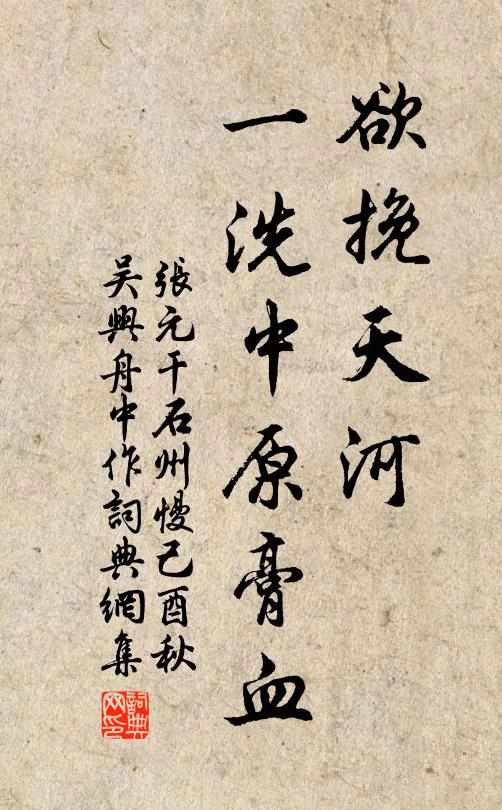 欲挽天河
一洗中原膏血
張元干石州慢己酉秋
吴興舟中作詞典網集
詞典
网印